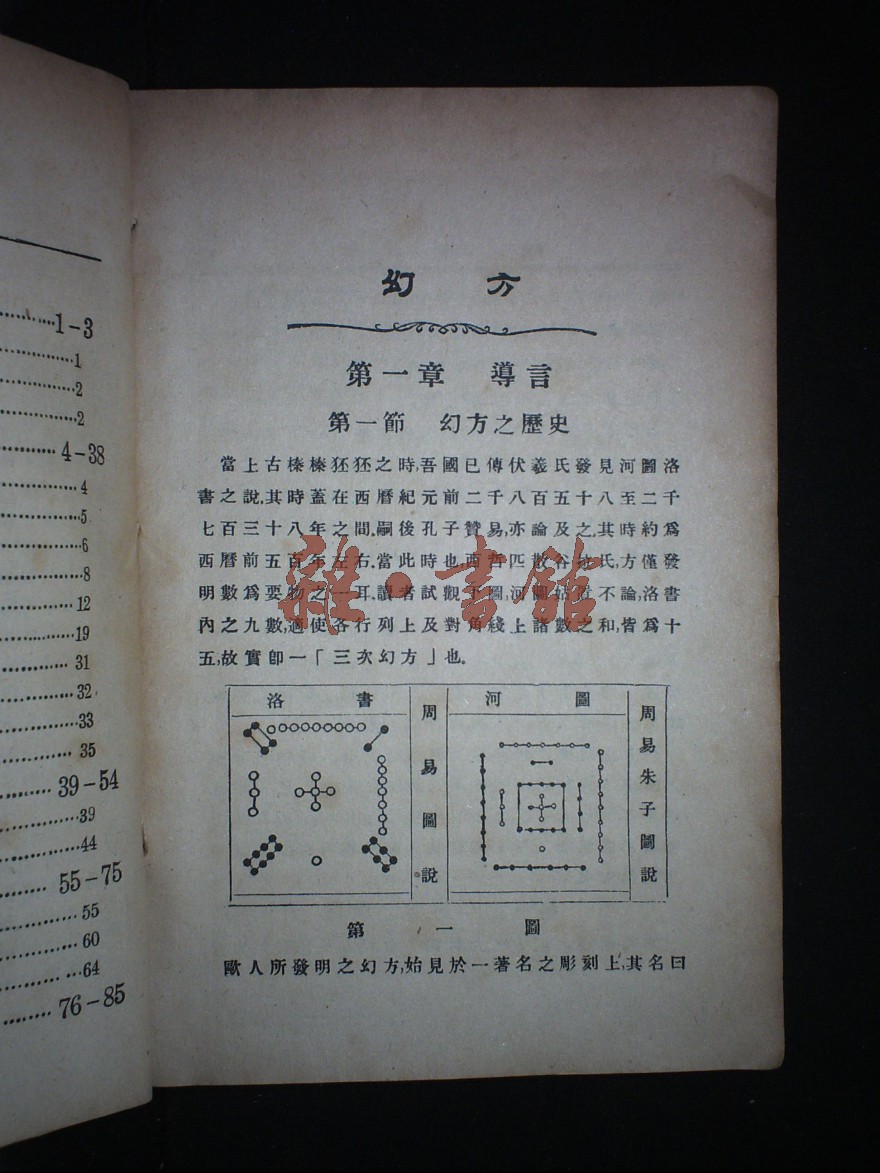 1-3
1
2
2
4-38
4
5
6
8
12
19
31
32
33
35
39-54
39
44
55-75
55
60
64
76-85
幻方
第一章 導言
第一節 幻方之歷史
當上古榛榛狉狉之時,吾國已傳伏羲氏發見河圖洛
書之說,其時蓋在西曆紀元前二千八百五十八至二千
七百三十八年之間,嗣後孔子贊易,亦論及之,其時約爲
西曆前五百年左右,當此時也,西哲匹散谷氏,方僅發
明數爲要物之一耳,讀者試觀下圖,河圖姑置不論,洛書
內之九數,適使各行列上及對角綫上諸數之和,皆爲十
五,故實卽一「三次幻方」也.
洛書
周易圖說
河圖
周易朱子圖說
第一圖
歐人所發明之幻方,始見於一著名之彫刻上,其名曰
雜·書館